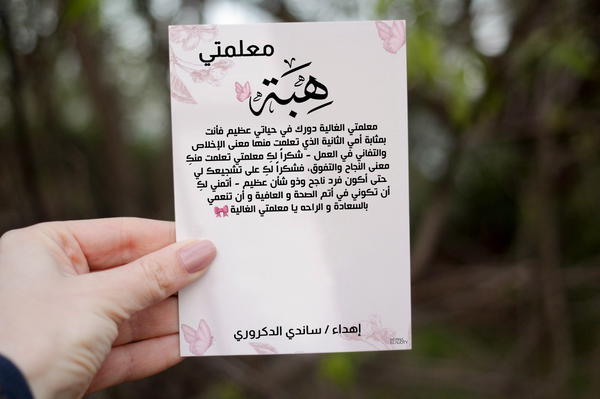 معلمتي
هِبَة
معلمتي الغالية دورك في حياتي عظيم فأنت
بمثابة أمي الثانية الذي تعلمت منها معنى الإخلاص
والتفاني في العمل - شكراً لكِ معلمتي تعلمت منكِ
معنى النجاح والتفوق، فشكراً لكِ على تشجيعك لي
حتى أكون فرد ناجح وذو شأن عظيم - أتمني لكِ
أن تكوني في أتم الصحة و العافية و أن تنعمي
بالسعادة و الراحه يا معلمتي الغالية
إهداء / ساندي الدكروري